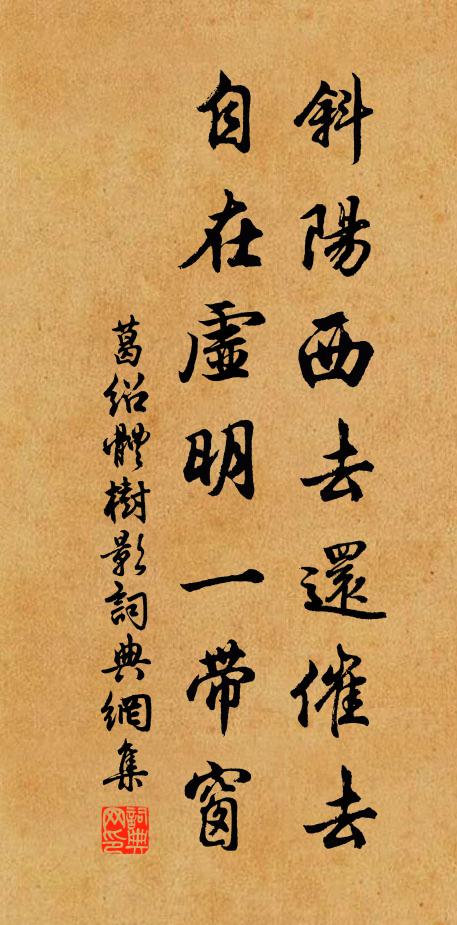 斜陽西去還催去
自在虛明一帶窗
葛紹體樹影詞典網集
詞典网印